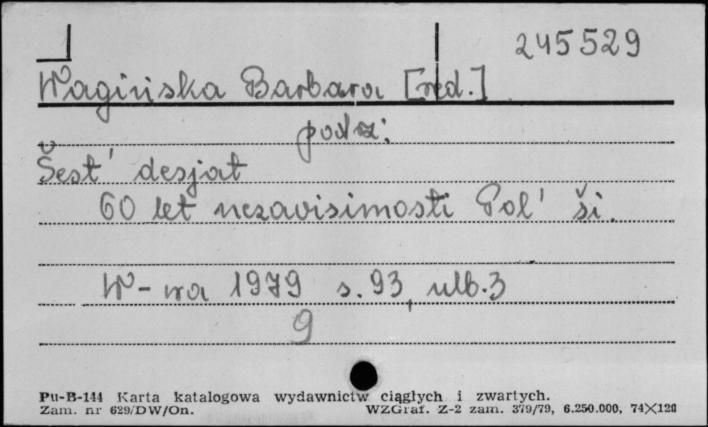 245529
Wagińska Barbara [red.]
podz:
Šest' desjat
60 let nezavisimosti Pol'ši.
W-wa 1979 s. 93, ulb. 3
9
Pu-B-144 Karta katalogowa wydawnictw ciągłych i zwartych.
Zam. nr 629/DW/On. WZGraf. Z-2 zam. 379/79, 6.250.000, 74×120